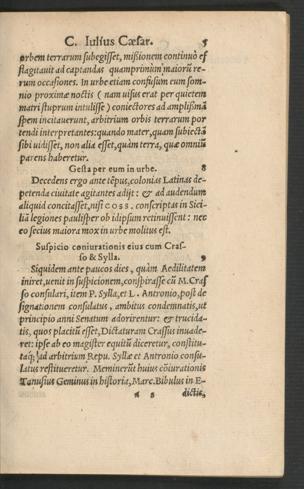 C. Iulius Cæsar. 5
orbem terrarum subegisset, missionem continuò ef
flagitauit ad captandas quamprimùm maiorū re-
rum occasiones. In urbe etiam confusum eum som-
nio proximæ noctis (nam uisus erat per quietem
matri stuprum intulisse) coniectores ad amplissimã
spem incitauerunt, arbitrium orbis terrarum por
tendi interpretantes: quando mater, quam subiectã
sibi uidisset, non alia esset, quàm terra, quæ omniũ
parens haberetur.
Gesta per eum in urbe. 8
Decedens ergo ante tẽpus, colonias Latinas de-
petenda ciuitate agitantes adijt: & ad audendum
aliquid concitasset, nisi COSS. conscriptas in Sici-
liã legiones paulisper ob idipsum retinuissent: nec
eo secius maiora mox in urbe molitus est.
Suspicio coniurationis eius cum Cras-
so & Sylla. 9
Siquidem ante paucos dies, quàm Aedilitatem
iniret, uenit in suspicionem, conspirasse cũ M. Cras
so consulari, item P. Sylla, et L. Antronio, post de
signationem consulatus, ambitus condemnatis, ut
principio anni Senatum adorirentur: & trucida-
tis, quos placitũ esset, Dictaturam Crassus inuade-
ret: ipse ab eo magister equitũ diceretur, constitu-
taq; ad arbitrium Repu. Syllæ et Antronio consu-
latus restitueretur. Meminerũt huius cõiurationis
Tanusius Geminus in historia, Marc. Bibulus in E-
a 5 dictis,